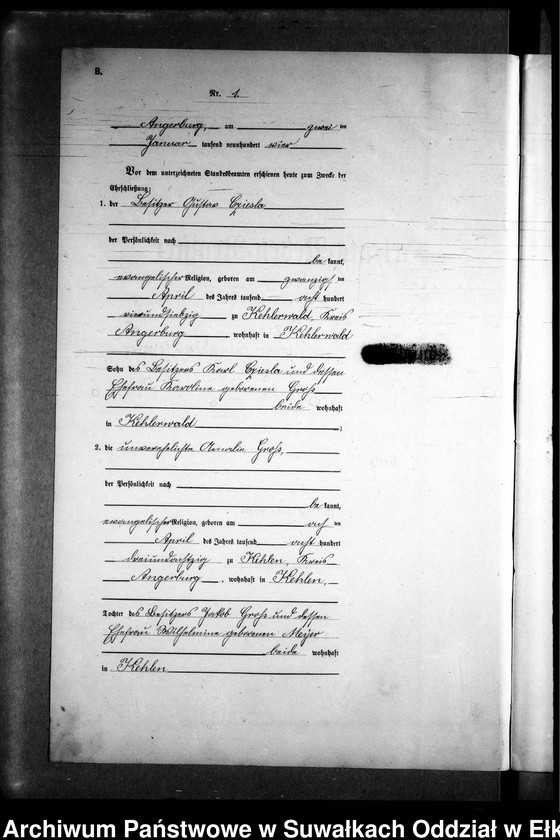 B.
Nr. 1.
Angerburg, am zwei ten
Januar tausend neunhundert vier
Vor dem unterzeichneten Standesbeamten erschienen heute zum Zwecke der
Eheschließung:
1. der Besitzer Gustav Cziesla
der Persönlichkeit nach
be kannt,
evangelischer Religion, geboren am zwanzigsten
April des Jahres tausend acht hundert
vierundsiebzig zu Kehlerwald, Kreis
Angerburg wohnhaft in Kehlerwald
Sohn des Besitzers Karl Cziesla und dessen
Ehefrau Karoline geborenen Groß
beide wohnhaft
in Kehlerwald ;
2. die unverehelichte Amalie Groß,
der Persönlichkeit nach
be kannt,
evangelischer Religion, geboren am ach ten
April des Jahres tausend acht hundert
dreiundachtzig zu Kehlen, Kreis
Angerburg, wohnhaft in Kehlen,
Tochter des Besitzers Jakob Groß und dessen
Ehefrau Wilhelmine geborenen Meyer
beide wohnhaft
in Kehlen
Archiwum Państwowe w Suwałkach Oddział w Ełk